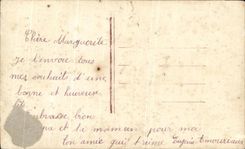 Chère Marguerite
je t'envoie tous
mes souhaits d'une
bonne et heureuse
embrasse bien
pa et la maman pour moi
ton amie qui t'aime